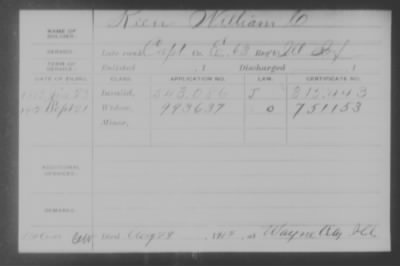 NAME OF SOLDIER: Keen William C
SERVICE: Late rank Capt Co. E. 63 Reg't Ill Inf
TERM OF SERVICE: Enlisted , 1 Discharged , 1
DATE OF FILING. CLASS. APPLICATION NO. LAW. CERTIFICATE NO.
Invalid, 543.086
Widow, 993637 751153
Minor,
ADDITIONAL SERVICES:
REMARKS:
Died Aug 29 , 191 , at Wayne City Ill